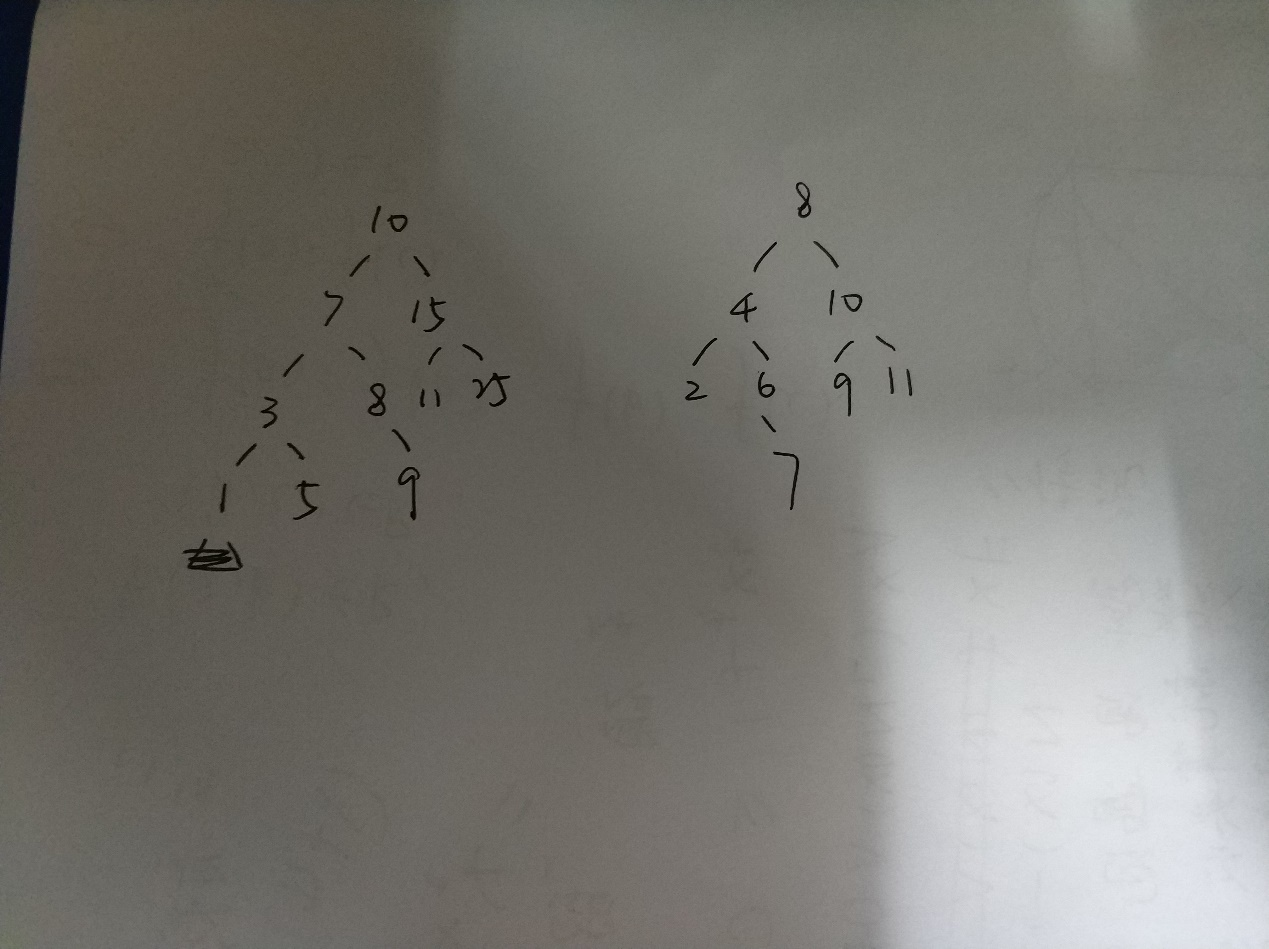 10
7 15
3 8 11 25
1 5 9
8
4 10
2 6 9 11
7